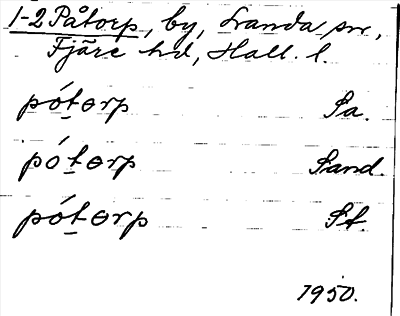 1-2 Påtorp, by, Landa sn,
Fjäre hd, Hall. l.
pótɵrp Sa.
pótɵrp Sand.
pótɵrp St.
1950.